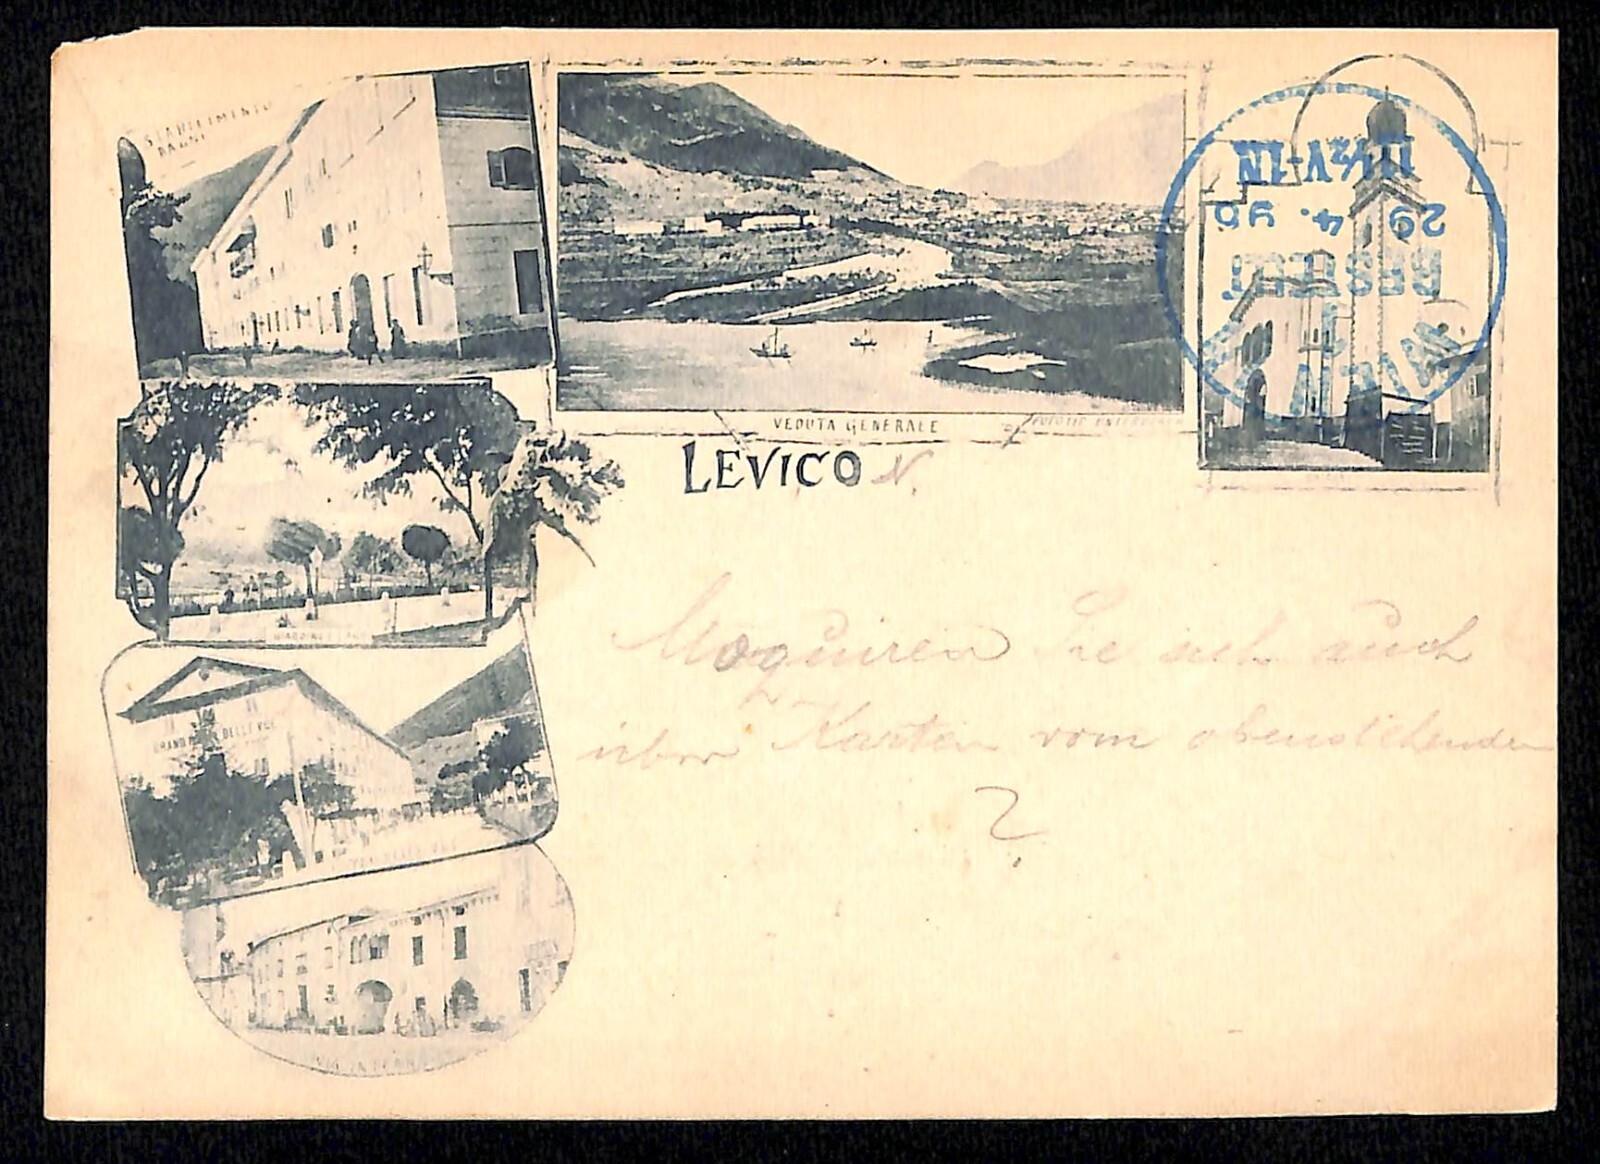 STABILIMENTO
BAGNI
VEDUTA GENERALE
LEVICO
GRAND HOTEL BELLE VUE
WIEN
BESTELLT
29 4. 9
11½V-1N
Moquiren Sie sich auch
über Karten vom obenstehenden
?